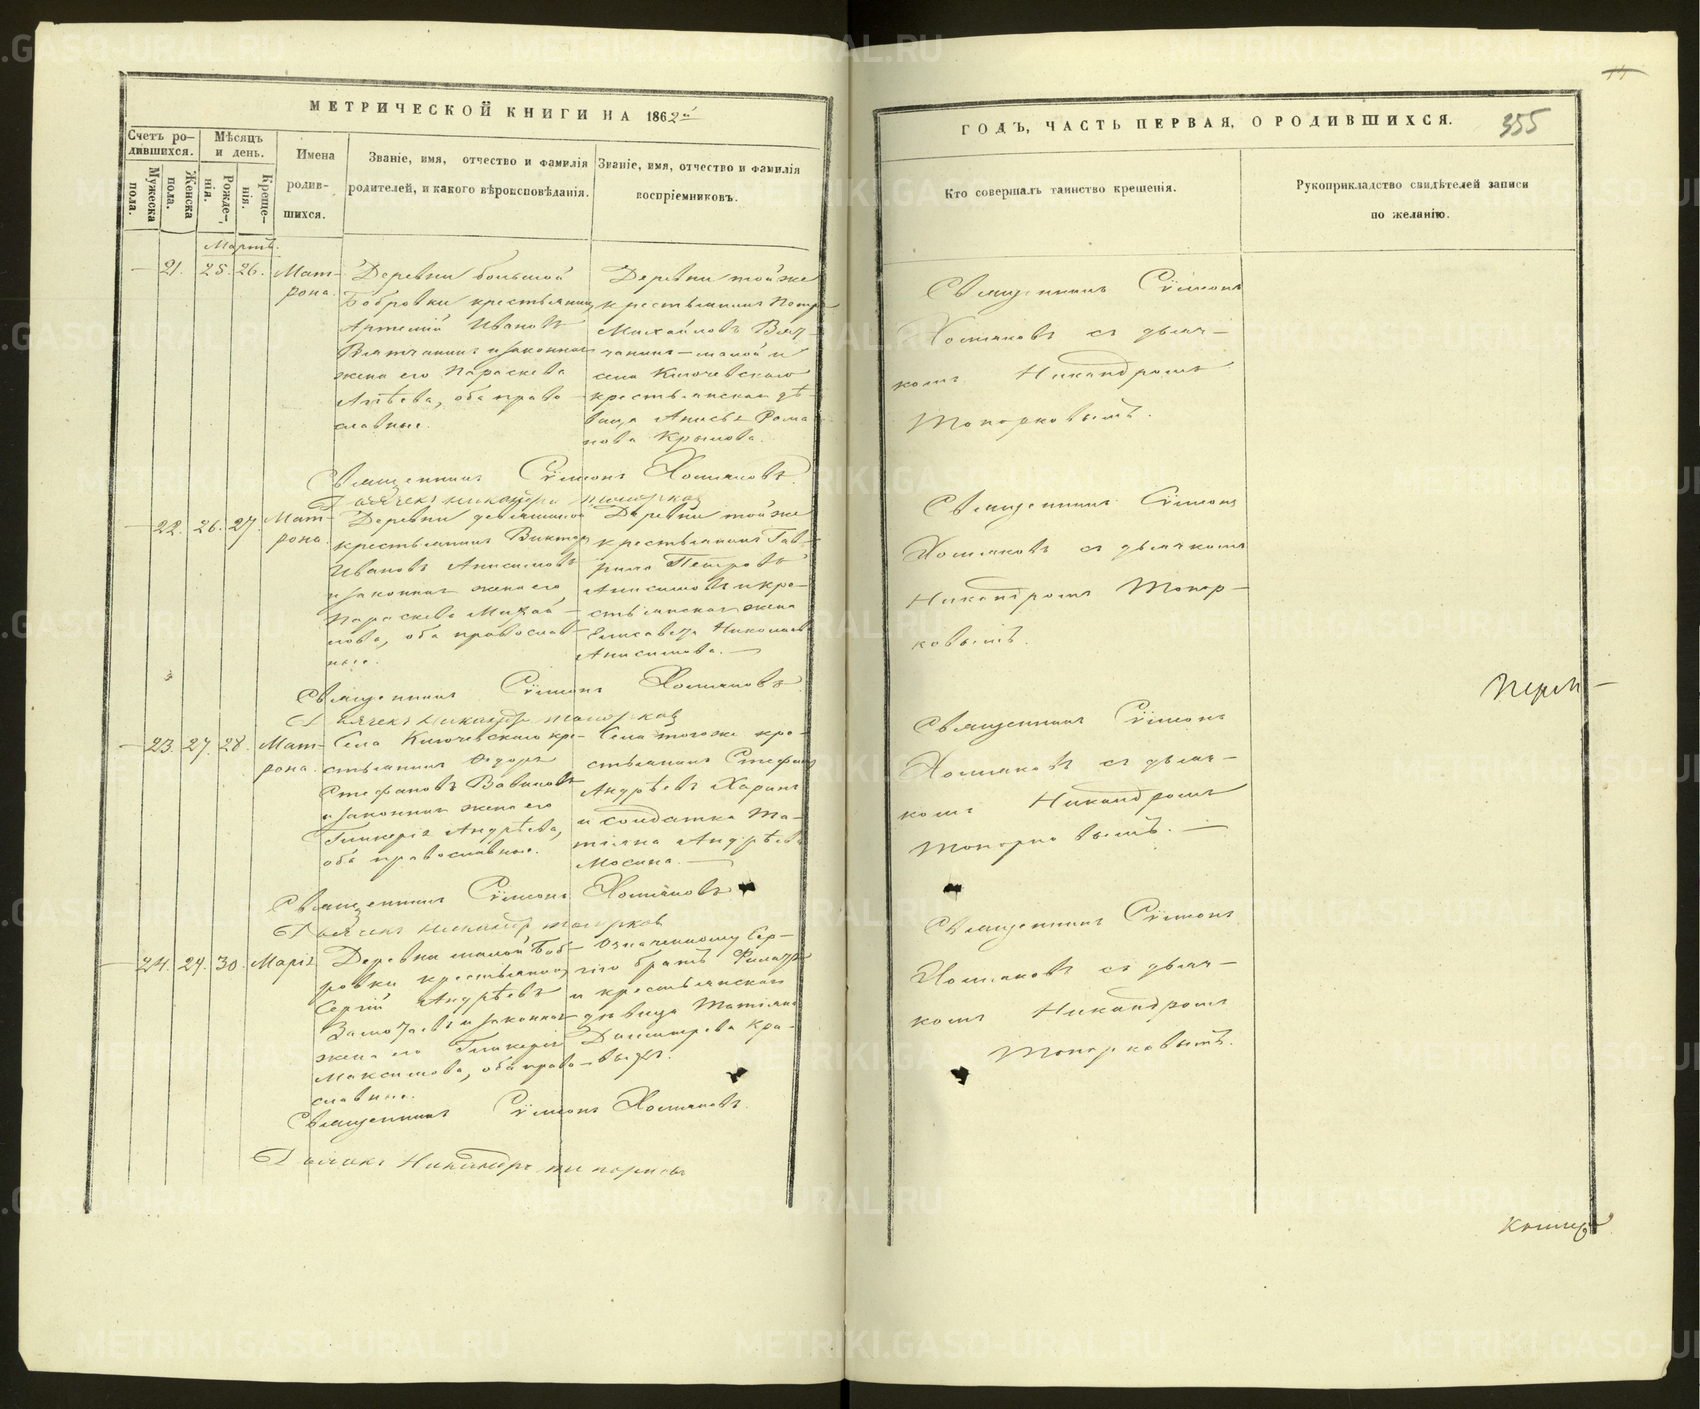 МЕТРИЧЕСКОЙ КНИГИ НА 1862й
Счетъ ро-
дившихся.
Мѣсяцъ
и день.
Мужеска
пола.
Женска
пола.
Рожде-
нія.
Креще-
нія.
Имена
родив-
шихся.
Званіе, имя, отчество и фамилія
родителей, и какого вѣроисповѣданія.
Званіе, имя, отчество и фамилія
воспріемниковъ.
Мартъ.
— 21. 25. 26. Мат-
рона.
Деревни большой
Бобровки крестьянинъ
Артемій Ивановъ
Вятчанинъ и законная
жена его Параскева
, оба право-
славные.
Деревни тойже
крестьянинъ Петръ
Михайловъ Вят
чанинъ
села Ключевскаго
крестьянская дѣ-
вица Анисья Рома
нова Крылова.
Священникъ Сѵмеонъ Хомяковъ.
Дьячекъ Никандръ Топорковъ
— 22. 26. 27. Мат-
рона.
Деревни
крестьянинъ Викторъ
Ивановъ Анисимовъ
и законная жена его
Параскева Михай-
лова, оба православ-
ные.
Деревни тойже
крестьянинъ Гав-
рило Петровъ
Анисимовъ и кре-
стьянская жена
Елисавета Николаева
Анисимова. —
Священникъ Сѵмеонъ Хомяковъ.
Дьячекъ Никандръ Топорковъ
— 23. 27. 28. Мат-
рона.
Села Ключевскаго кре-
стьянинъ Ѳедоръ
Стефановъ Вавиловъ
и законная жена его
Гликерія Андрѣева,
оба православные.
Села тогоже кре-
стьянинъ Стефанъ
Андрѣевъ Харинъ
и солдатка Та-
тіяна Андрѣева
Мосина. —
Священникъ Сѵмеонъ Хомяковъ
Дьячекъ Никандръ Топорковъ
— 24. 24. 30. Марія
Деревни малой Боб-
ровки крестьянинъ
Сергій Андрѣевъ
и законная
жена его Гликерія
Максимова, оба право-
славные.
Означенному Сер-
гію братъ Филатъ
и крестьянская
дѣвица Татіяна
Димитріева Кра-
выхъ.
Священникъ Сѵмеонъ Хомяковъ.
Дьячекъ Никандръ Топорковъ
ГОДЪ, ЧАСТЬ ПЕРВАЯ, О РОДИВШИХСЯ.
355
Кто совершалъ таинство крещенія.
Рукоприкладство свидѣтелей записи
по желанію.
Священникъ Сѵмеонъ
Хомяковъ съ дьяч-
комъ Никандромъ
Топорковымъ.
Священникъ Сѵмеонъ
Хомяковъ съ дьячкомъ
Никандромъ Топор-
ковымъ.
Священникъ Сѵмеонъ
Хомяковъ съ дьяч-
комъ Никандромъ
Топорковымъ. —
Священникъ Сѵмеонъ
Хомяковъ съ дьяч-
комъ Никандромъ
Топорковымъ.
Перм-
METRIKI.GASO-URAL.RU